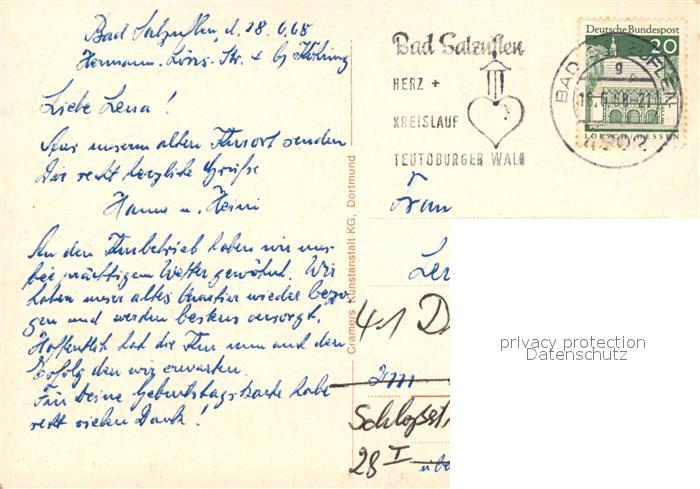 Bad Salzuflen, d. 18.6.68
Hermann-Löns-Str. 4 bei
Liebe Lena!
Aus unserm alten Kurort senden
Dir recht herzliche Grüße
Hanne u. Heini
An den Kurbetrieb haben wir uns
bei prächtigem Wetter gewöhnt. Wir
haben unser altes Quartier wieder bezo-
gen und werden bestens versorgt.
Hoffentlich hat die Kur nun auch den
Erfolg den wir erwarten.
Für Deine Geburtstagskarte habe
recht vielen Dank!
Cramers Kunstanstalt KG, Dortmund
Bad Salzuflen
HERZ +
KREISLAUF
TEUTOBURGER WALD
Deutsche Bundespost
20
LORSCH/HESSEN
BAD SALZUFLEN
4902
Frau
41 D
Schloßst
28 I
privacy protection
Datenschutz